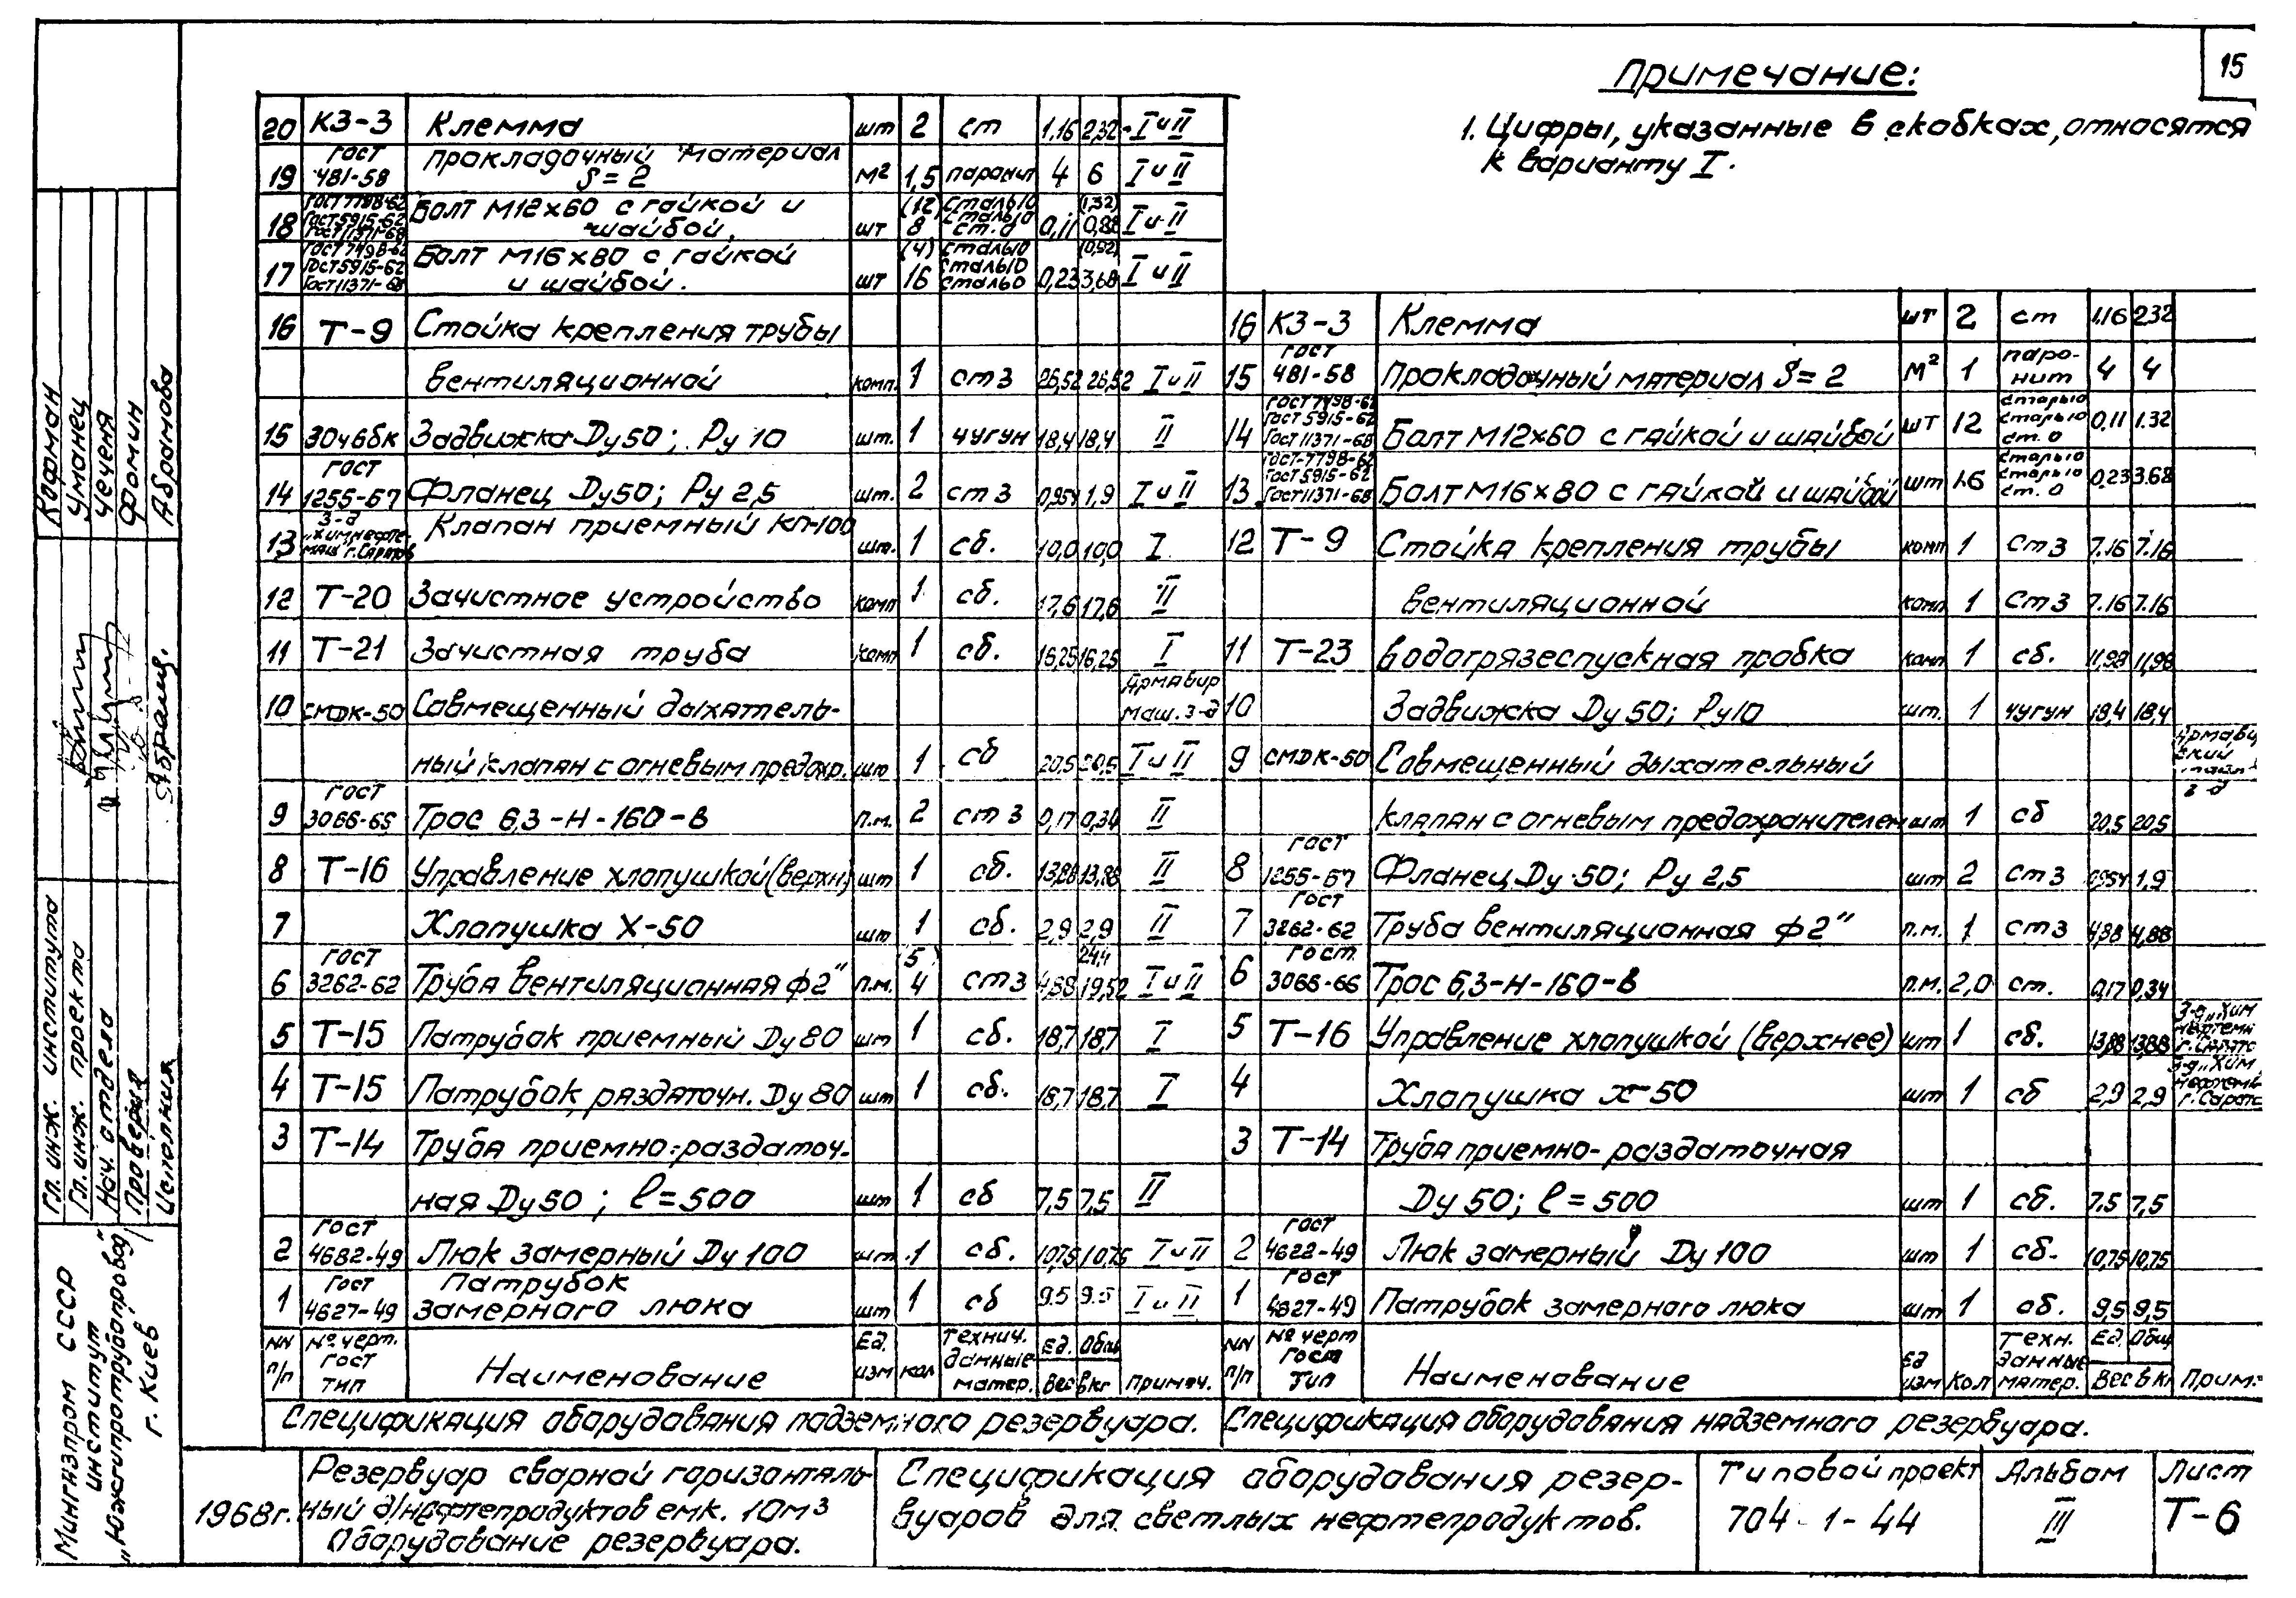 15
Примечание:
1. Цифры, указанные в скобках, относятся
к варианту I.
20 КЗ-3 Клемма шт 2 ст 1,16 2,32 I и II
19 ГОСТ 481-58 Прокладочный материал S=2 м² 1,5 паронит 4 6 I и II
18 ГОСТ 7798-62 ГОСТ 5915-62 ГОСТ 11371-68 Болт М12х60 с гайкой и шайбой. шт (12) 8 сталь10 сталь10 ст.0 0,11 (1,32) 0,88 I и II
17 ГОСТ 7798-62 ГОСТ 5915-62 ГОСТ 11371-68 Болт М16х80 с гайкой и шайбой. шт (4) 16 сталь10 сталь10 сталь0 0,23 (0,92) 3,68 I и II
16 Т-9 Стойка крепления трубы
вентиляционной комп. 1 ст3 26,52 26,52 I и II
15 30ч6бк Задвижка Ду50; Ру 10 шт. 1 чугун 18,4 18,4 II
14 ГОСТ 1255-67 Фланец Ду50; Ру 2,5 шт. 2 ст3 0,954 1,9 I и II
13 з-д „Химнефте-маш" г.Саратов Клапан приемный КП-100 шт. 1 сб. 10,0 10,0 I
12 Т-20 Зачистное устройство комп 1 сб. 17,6 17,6 II
11 Т-21 Зачистная труба комп 1 сб. 16,25 16,25 I
10 СМДК-50 Совмещенный дыхатель- Армавир маш. з-д
ный клапан с огневым предохр. шт 1 сб 20,5 20,5 I и II
9 ГОСТ 3066-66 Трос 6,3-Н-160-В п.м. 2 ст 3 0,17 0,34 II
8 Т-16 Управление хлопушкой (верхн) шт 1 сб. 13,88 13,88 II
7 Хлопушка Х-50 шт 1 сб. 2,9 2,9 II
6 ГОСТ 3262-62 Труба вентиляционная ф2" п.м. 5 4 ст3 4,88 24,4 19,52 I и II
5 Т-15 Патрубок приемный Ду 80 шт 1 сб. 18,7 18,7 I
4 Т-15 Патрубок раздаточн. Ду 80 шт 1 сб. 18,7 18,7 I
3 Т-14 Труба приемно-раздаточ-
ная Ду50; ℓ=500 шт 1 сб 7,5 7,5 II
2 ГОСТ 4682-49 Люк замерный Ду 100 шт 1 сб. 10,75 10,75 I и II
1 ГОСТ 4627-49 Патрубок замерного люка шт 1 сб 9.5 9.5 I и II
NN п/п № черт. ГОСТ тип Наименование Ед. изм кол Технич. данные матер. Ед. Общ Вес в кг Примеч.
Спецификация оборудования подземного резервуара.
16 КЗ-3 Клемма шт 2 ст 1,16 2,32
15 ГОСТ 481-58 Прокладочный материал S=2 м² 1 паро-нит 4 4
14 ГОСТ 7798-62 ГОСТ 5915-62 ГОСТ 11371-68 Болт М12х60 с гайкой и шайбой шт 12 сталь10 сталь10 ст. 0 0,11 1.32
13 ГОСТ-7798-62 ГОСТ 5915-62 ГОСТ 11371-68 Болт М16х80 с гайкой и шайбой шт 16 сталь10 сталь10 ст. 0 0,23 3.68
12 Т-9 Стойка крепления трубы комп 1 ст3 7.16 7.16
вентиляционной комп 1 ст3 7.16 7.16
11 Т-23 Водогрязеспускная пробка комп 1 сб. 11,98 11,98
10 Задвижка Ду 50; Ру10 шт. 1 чугун 18,4 18,4
9 СМДК-50 Совмещенный дыхательный
клапан с огневым предохранителем шт 1 сб 20,5 20,5
8 ГОСТ 1255-67 Фланец Ду 50; Ру 2,5 шт 2 ст3 0,954 1,9
7 ГОСТ 3262-62 Труба вентиляционная ф2" п.м. 1 ст3 4,88 4,88
6 ГОСТ 3066-66 Трос 6,3-Н-160-В п.м. 2,0 ст. 0,17 0,34
5 Т-16 Управление хлопушкой (верхнее) шт 1 сб. 13,88 13,88 з-д „Хим
4 Хлопушка х-50 шт 1 сб 2,9 2,9 з-д „Хим
3 Т-14 Труба приемно-раздаточная
Ду 50; ℓ=500 шт 1 сб. 7,5 7,5
2 ГОСТ 4622-49 Люк замерный Ду 100 шт 1 сб. 10,75 10,75
1 ГОСТ 4627-49 Патрубок замерного люка шт 1 сб. 9,5 9,5
NN п/п № черт ГОСТ Тип Наименование Ед изм Кол Техн. данные матер. Ед. Общ Вес в кг Прим.
Спецификация оборудования надземного резервуара.
1968г.
Резервуар сварной горизонталь-
ный д/нефтепродуктов емк. 10м3
Оборудование резервуара.
Спецификация оборудования резер-
вуаров для светлых нефтепродуктов.
Типовой проект
704-1-44
Альбом
III
Лист
Т-6
Мингазпром СССР
институт
„Южгипротрубопровод"
г. Киев
Гл. инж. института
Гл. инж. проекта
Нач. отдела
Проверил
Исполнил
Кофман
Уманец
Чеченя
Фомин
Абрамова